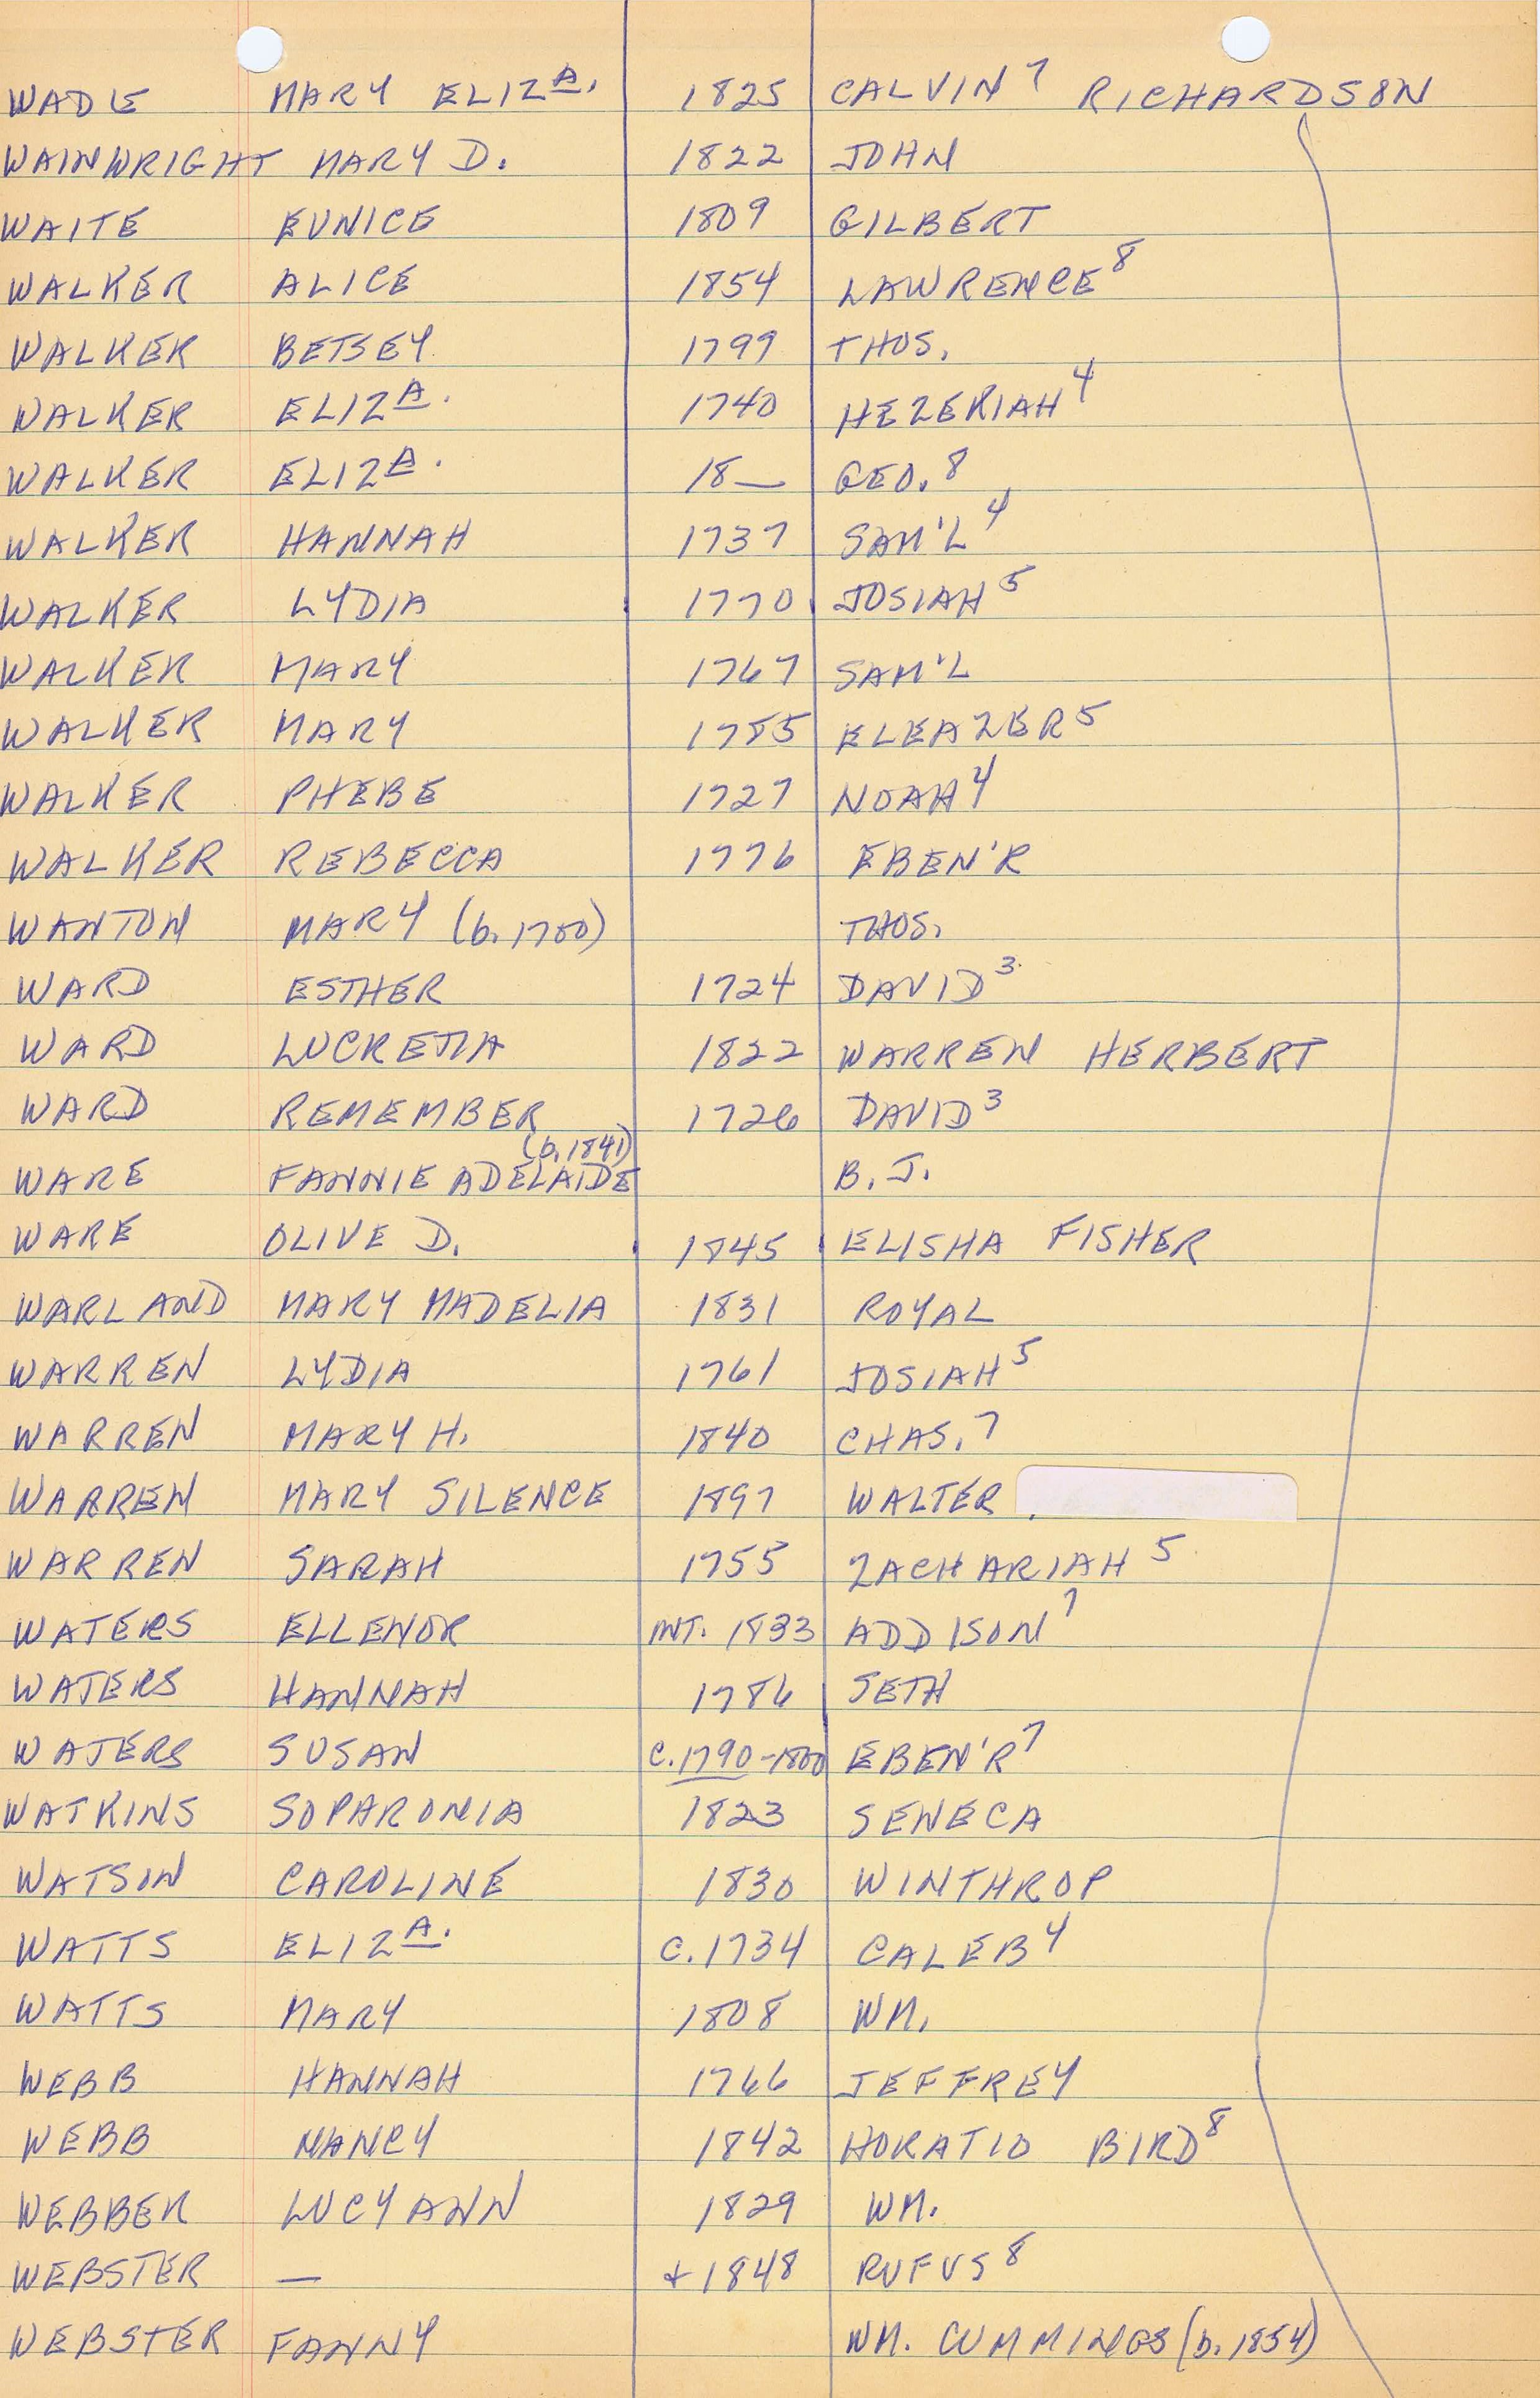 WADE MARY ELIZA. 1825 CALVIN7 RICHARDSON
WAINWRIGHT MARY D. 1822 JOHN
WAITE EUNICE 1809 GILBERT
WALKER ALICE 1854 LAWRENCE8
WALKER BETSEY 1799 THOS.
WALKER ELIZA. 1740 HEZEKIAH4
WALKER ELIZA. 18— GEO.8
WALKER HANNAH 1737 SAM'L4
WALKER LYDIA 1770 JOSIAH5
WALKER MARY 1767 SAM'L
WALKER MARY 1785 ELEAZER5
WALKER PHEBE 1727 NOAH4
WALKER REBECCA 1776 EBEN'R
WANTON MARY (b. 1700) THOS.
WARD ESTHER 1724 DAVID3
WARD LUCRETIA 1822 WARREN HERBERT
WARD REMEMBER 1726 DAVID3
(b. 1841)
WARE FANNIE ADELAIDE B. J.
WARE OLIVE D. 1845 ELISHA FISHER
WARLAND MARY MADELIA 1831 ROYAL
WARREN LYDIA 1761 JOSIAH5
WARREN MARY H. 1840 CHAS.7
WARREN MARY SILENCE 1897 WALTER
WARREN SARAH 1755 ZACHARIAH5
WATERS ELLENOR INT. 1833 ADDISON7
WATERS HANNAH 1786 SETH
WATERS SUSAN C. 1790-1800 EBEN'R7
WATKINS SOPARONIA 1823 SENECA
WATSON CAROLINE 1830 WINTHROP
WATTS ELIZA. C. 1734 CALEB4
WATTS MARY 1808 WM.
WEBB HANNAH 1766 JEFFREY
WEBB NANCY 1842 HORATIO BIRD8
WEBBER LUCY ANN 1829 WM.
WEBSTER — + 1848 RUFUS8
WEBSTER FANNY WM. CUMMINGS (b. 1854)